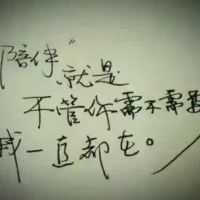 陪伴”就是
不管你需不需要
我一直都在。